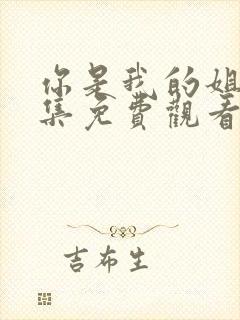 你是我的姐
集免費觀看
吉布生